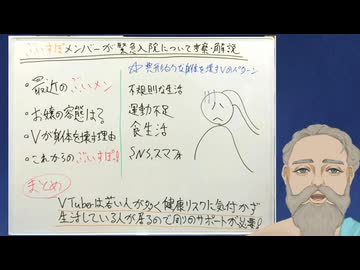 ぶいすぽメンバーが緊急入院について考察・解説
・最近のぶいメン
・お嬢の容態は?
・Vが身体を壊す理由
・これからのぶいすぽっ!
☆典型的な身体を壊すVのパターン
不規則な生活
運動不足
食生活
SNS、スマホ
まとめ
VTuberは若い人が多く健康リスクに気付かず
生活している人が居るので周りのサポートが必要!